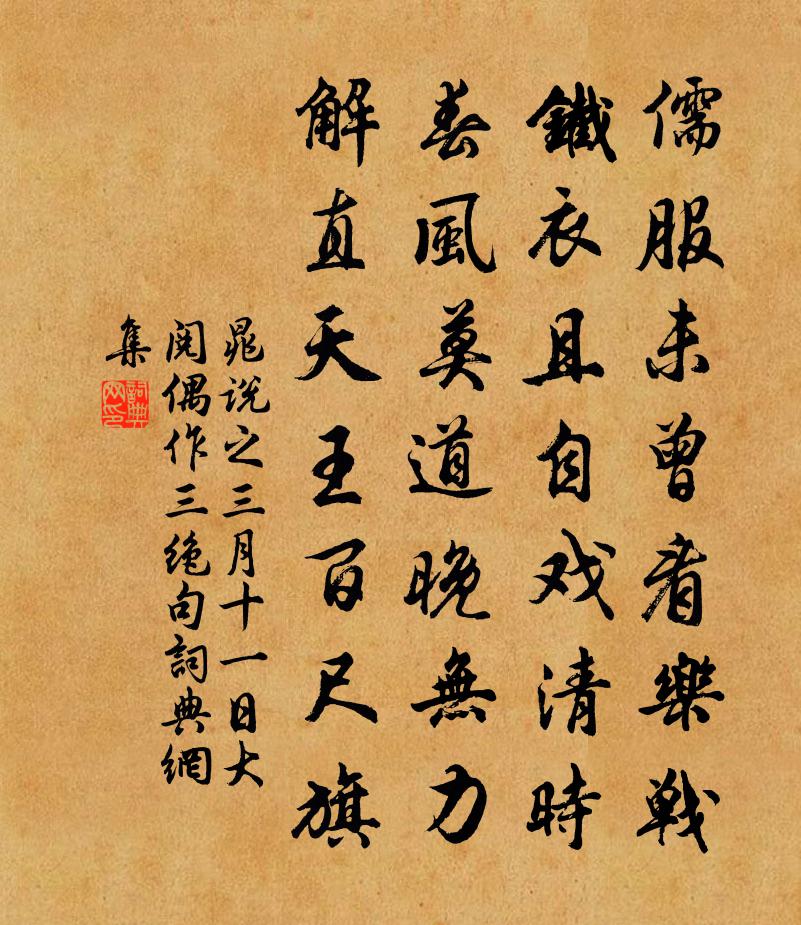 儒服未曾看樂戰
鐵衣且自戏清時
春風莫道晚無力
解直天王百尺旗
晁說之三月十一日大
閱偶作三絕句詞典網
集
詞典
网印